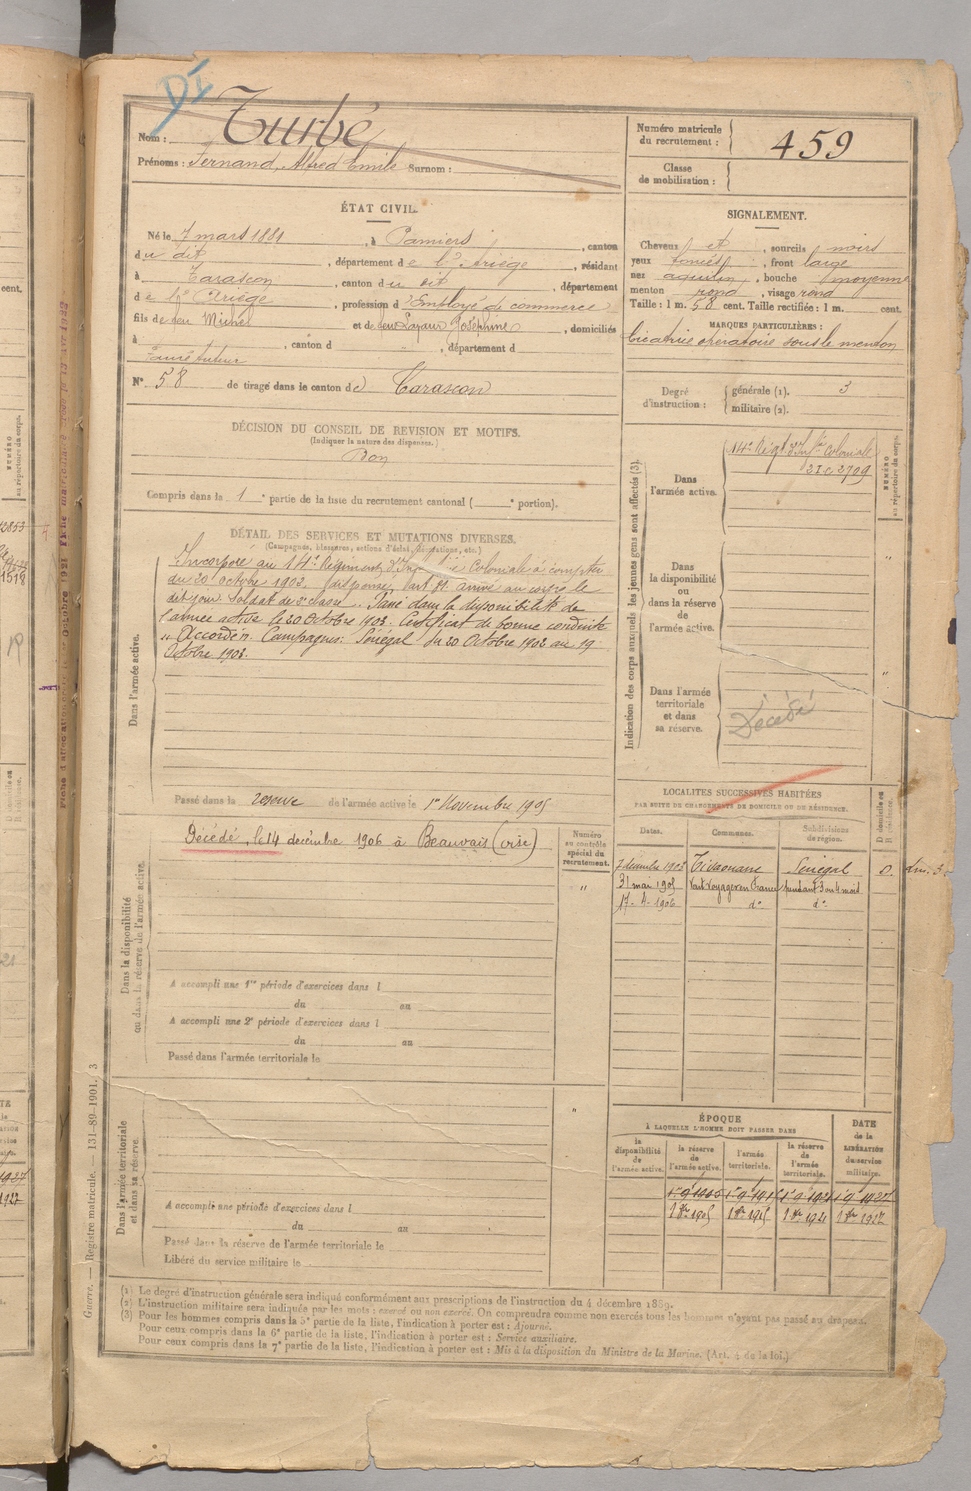 DI
Nom : Turbé
Prénoms : Fernand, Alfred Emile Surnom :
Numéro matricule du recrutement : 459
Classe de mobilisation :
ÉTAT CIVIL.
Né le 7 mars 1881, à Pamiers, canton
du dit, département de l'Ariège, résidant
à Tarascon, canton du dit, département
de l'Ariège, profession d'Employé de commerce
fils de feu Michel et de feue Joséphine, domiciliés
à , canton d , département d
N° 58 de tirage dans le canton de Tarascon
SIGNALEMENT.
Cheveux et, sourcils noirs
yeux foncés, front large
nez aquilin, bouche moyenne
menton rond, visage rond
Taille : 1 m. 58 cent. Taille rectifiée : 1 m. cent.
MARQUES PARTICULIÈRES :
Cicatrice opératoire sous le menton
Degré d'instruction : générale (1). 3
militaire (2).
DÉCISION DU CONSEIL DE REVISION ET MOTIFS.
(Indiquer la nature des dispenses.)
Bon
Compris dans la 1e partie de la liste du recrutement cantonal ( e portion).
DÉTAIL DES SERVICES ET MUTATIONS DIVERSES.
(Campagnes, blessures, actions d'éclat, décorations, etc.)
Dans l'armée active.
Incorporé au 14e Régiment d'Infanterie Coloniale à compter
du 20 Octobre 1902. arrivé au corps le
dit jour. Soldat de 2e classe. Passé dans la disponibilité de
l'armée active le 20 Octobre 1903. Certificat de bonne conduite
"Accordé". Campagnes : Sénégal du 20 Octobre 1902 au 19
Octobre 1903.
Passé dans la reserve de l'armée active le 1er Novembre 1905
Indication des corps auxquels les jeunes gens sont affectés (3).
NUMÉRO au répertoire du corps.
Dans l'armée active.
14e Régt d'Infrie Coloniale
2709
Dans la disponibilité ou dans la réserve de l'armée active.
Dans l'armée territoriale et dans sa réserve.
Décédé
Dans la disponibilité ou dans la réserve de l'armée active.
Décédé, le 14 decembre 1906 à Beauvais (Oise)
Numéro au contrôle spécial du recrutement.
"
A accompli une 1re période d'exercices dans l
du au
A accompli une 2e période d'exercices dans l
du au
Passé dans l'armée territoriale le
LOCALITÉS SUCCESSIVES HABITÉES
PAR SUITE DE CHANGEMENTS DE DOMICILE OU DE RÉSIDENCE.
Dates. Communes. Subdivisions de région. D domicile ou R résidence.
7 décembre 1903 Tivaouane Sénégal D.
31 mai 1905 Vait voyager en France pendant 3 ou 4 mois
17-4-1906 do do
Dans l'armée territoriale et dans sa réserve.
"
A accompli une période d'exercices dans l
du au
Passé dans la réserve de l'armée territoriale le
Libéré du service militaire le
ÉPOQUE
À LAQUELLE L'HOMME DOIT PASSER DANS
la disponibilité de l'armée active.
la réserve de l'armée active.
l'armée territoriale.
la réserve de l'armée territoriale.
DATE de la LIBÉRATION du service militaire.
1 9bre 1905 1 9bre 1915 1 9bre 1921 1 9bre 1927
(1) Le degré d'instruction générale sera indiqué conformément aux prescriptions de l'instruction du 4 décembre 1889.
(2) L'instruction militaire sera indiquée par les mots : exercé ou non exercé. On comprendra comme non exercés tous les hommes n'ayant pas passé au drapeau.
(3) Pour les hommes compris dans la 5e partie de la liste, l'indication à porter est : Ajourné.
Pour ceux compris dans la 6e partie de la liste, l'indication à porter est : Service auxiliaire.
Pour ceux compris dans la 7e partie de la liste, l'indication à porter est : Mis à la disposition du Ministre de la Marine. (Art. 4 de la loi.)
Guerre. — Registre matricule. — 131-89-1901. 3